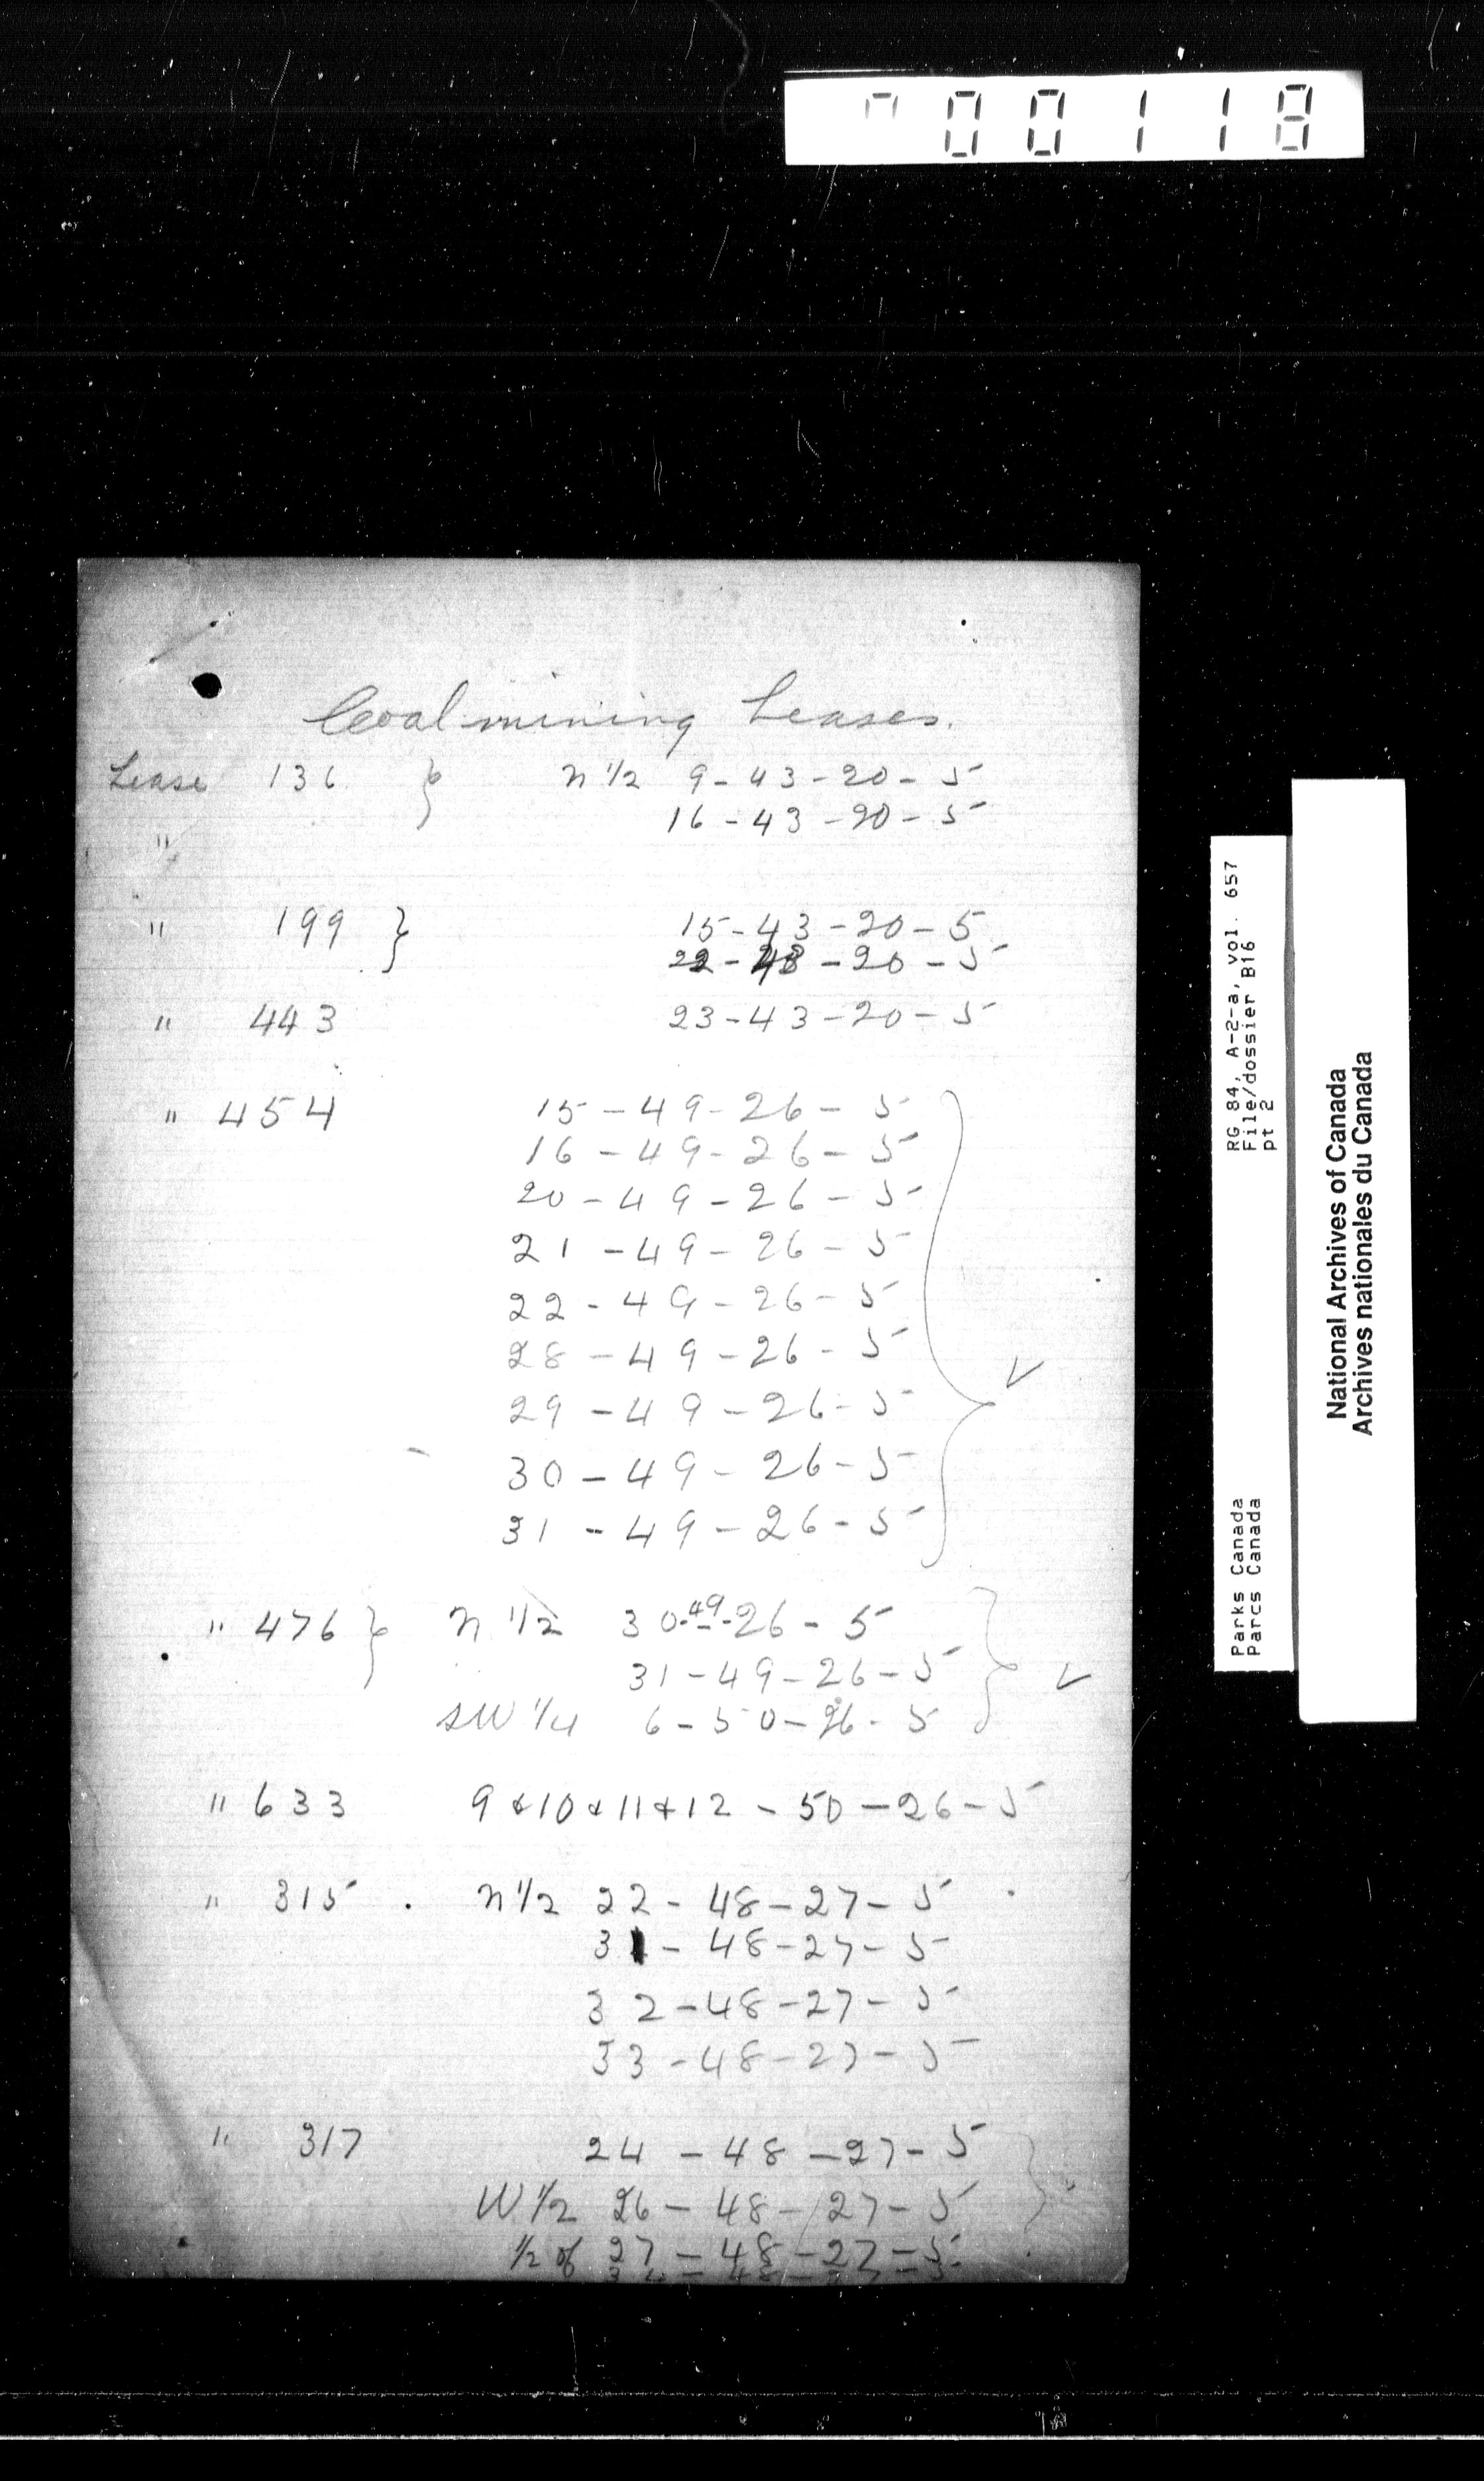 000118
Coal mining Leases.
Lease 136 } N 1/2 9-43-20-5
16-43-20-5
"
" 199 } 15-43-20-5
22-43-20-5
" 443 23-43-20-5
" 454 15-49-26-5
16-49-26-5
20-49-26-5
21-49-26-5
22-49-26-5
28-49-26-5
29-49-26-5
30-49-26-5
31-49-26-5
" 476 } N 1/2 30-49-26-5
31-49-26-5
SW 1/4 6-50-26-5
" 633 9 & 10 & 11 & 12 - 50-26-5
" 315 . N 1/2 22-48-27-5
31-48-27-5
32-48-27-5
33-48-27-5
" 317 24-48-27-5
W 1/2 26-48-27-5
1/2 of 27-48-27-5
RG 84, A-2-a, vol. 657
File/dossier B16
pt 2
Parks Canada
Parcs Canada
National Archives of Canada
Archives nationales du Canada